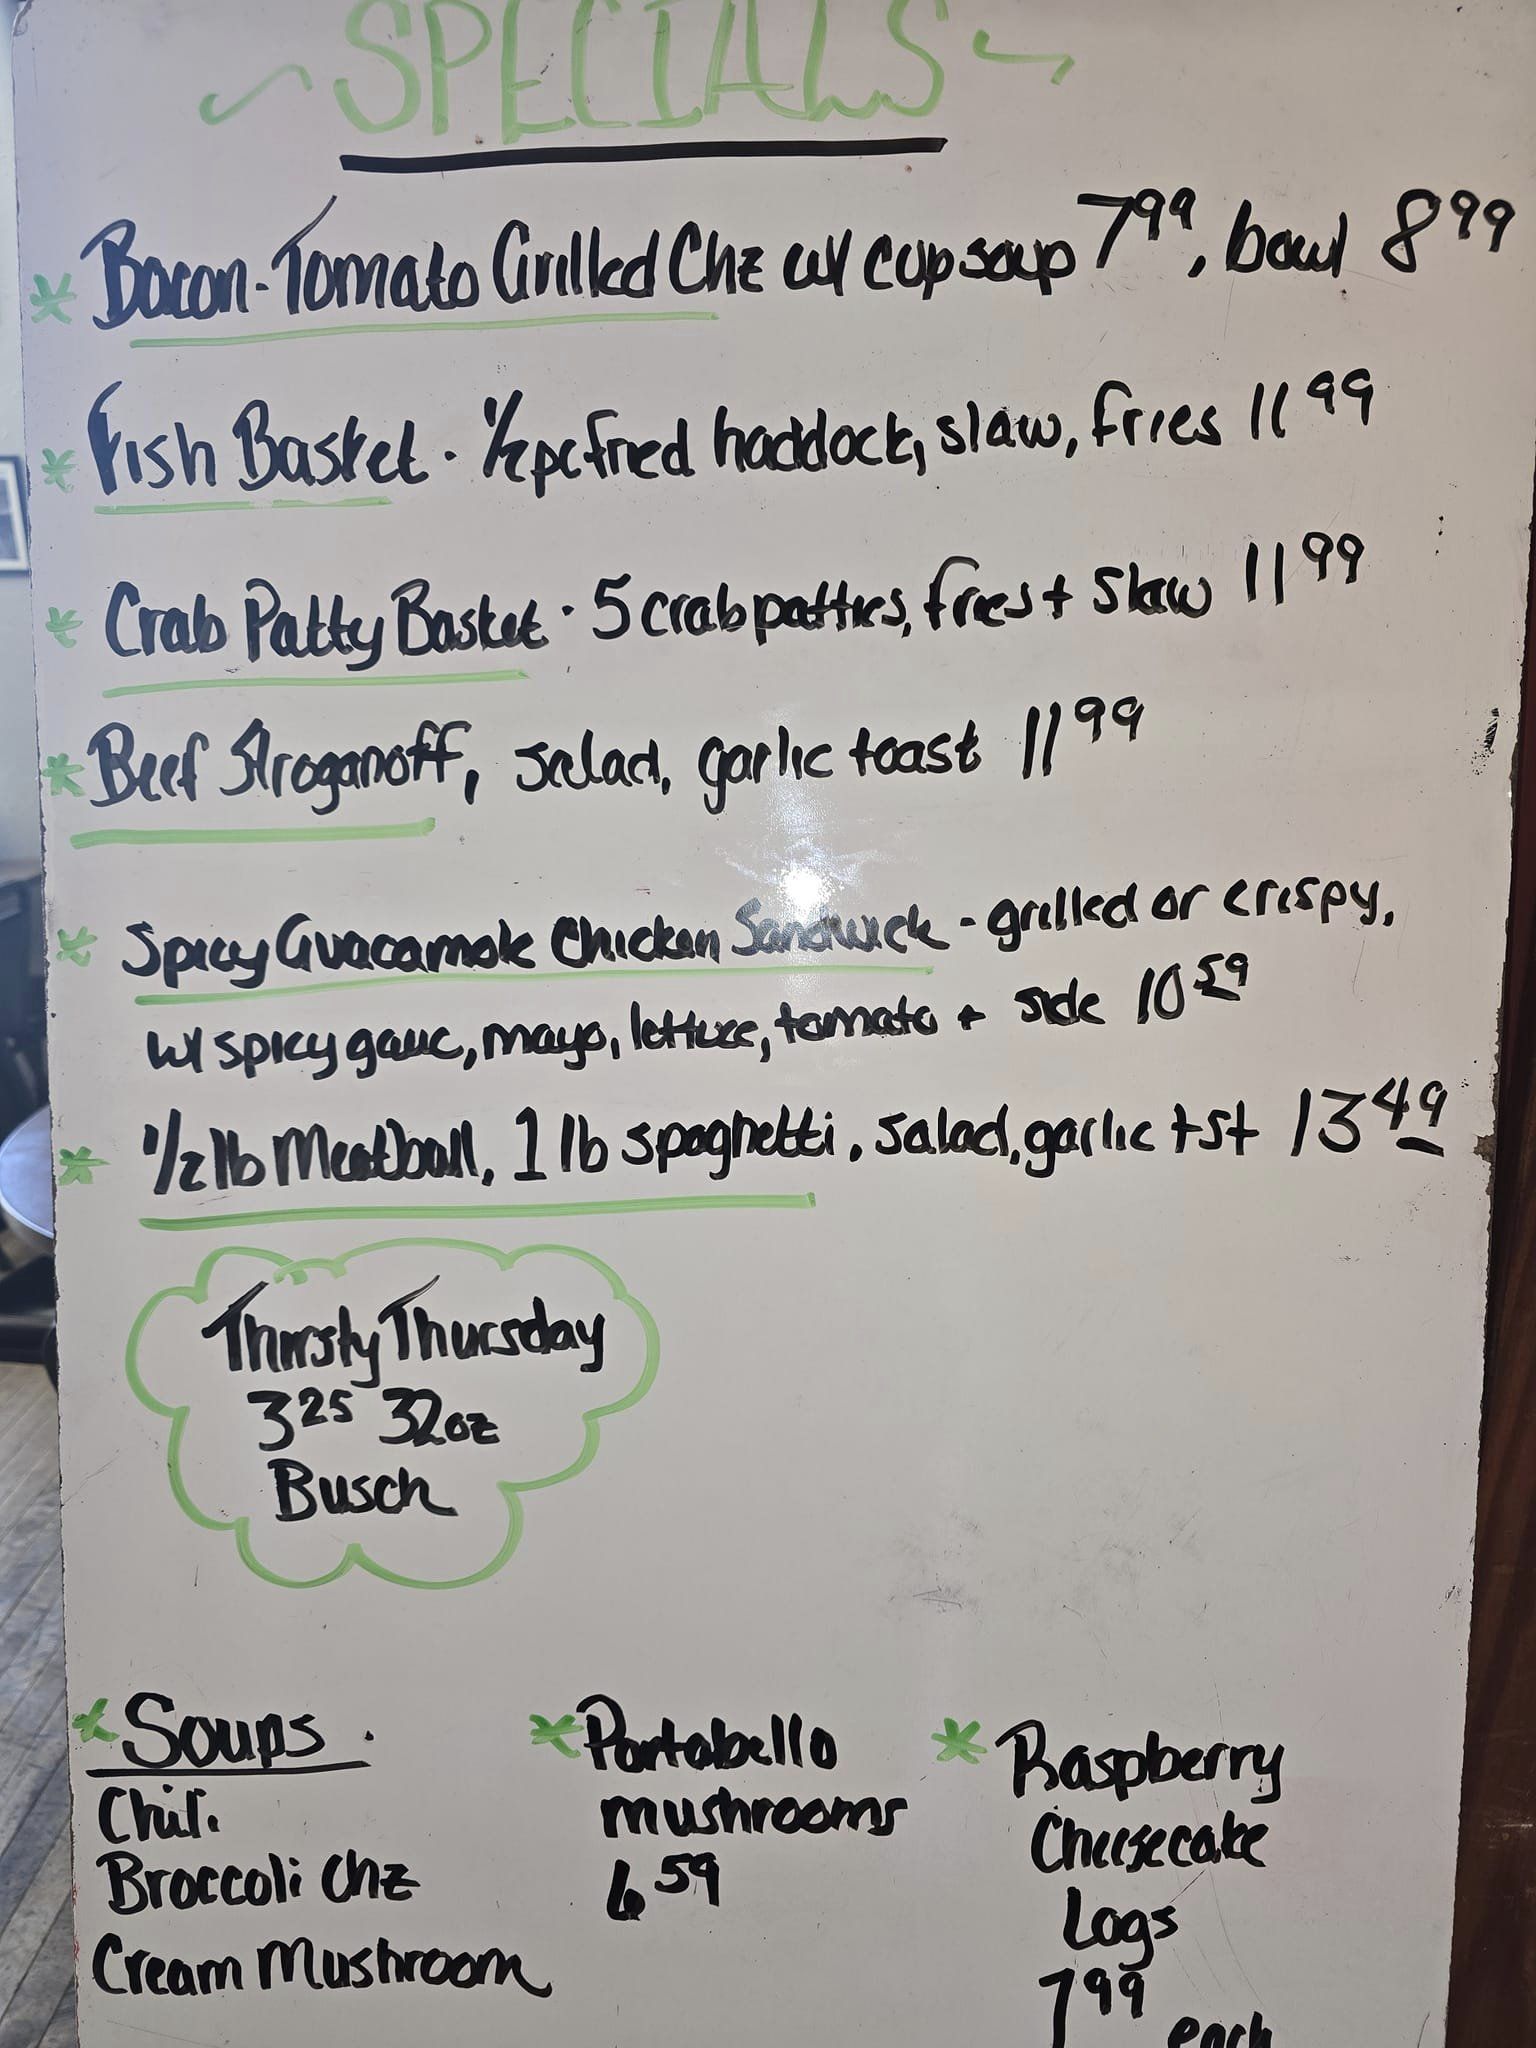 SPECIALS
* Bacon-Tomato Grilled Chz w/ cup soup 7⁹⁹, bowl 8⁹⁹
* Fish Basket · 1/2 pc fried haddock, slaw, fries 11⁹⁹
* Crab Patty Basket · 5 crab patties, fries + slaw 11⁹⁹
* Beef Stroganoff, salad, garlic toast 11⁹⁹
* Spicy Guacamole Chicken Sandwich - grilled or crispy,
w/ spicy gauc, mayo, lettuce, tomato + side 10⁵⁹
* 1/2 lb Meatball, 1 lb spaghetti, salad, garlic tst 13⁴⁹
Thirsty Thursday
3²⁵ 32oz
Busch
* Soups
Chili
Broccoli Chz
Cream Mushroom
* Portabello
mushrooms
6⁵⁹
* Raspberry
Cheesecake
Logs
7⁹⁹ each